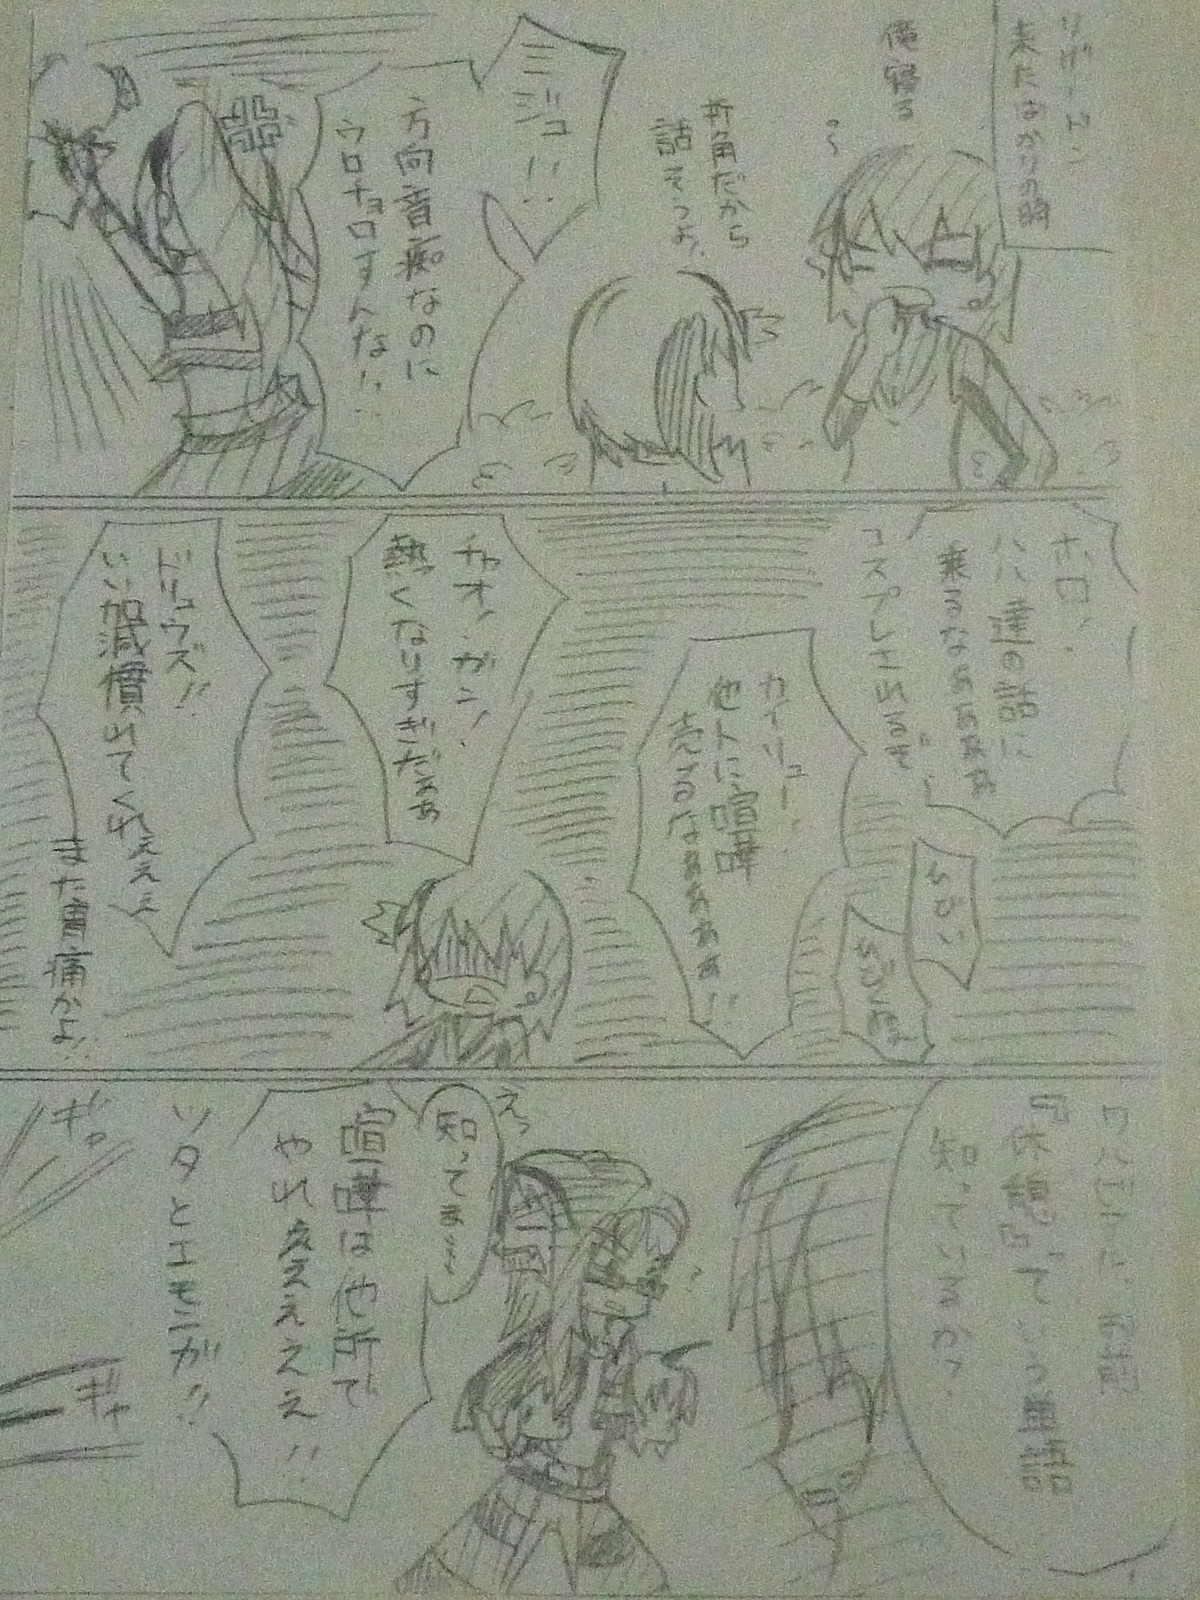 来たばかりの時
俺寝る
折角だから
話そうよ
ミジュ!!
方向音痴なのに
ウロチョロすんな!!
ホロ!
ハハ達の話に
乗るなぁぁぁぁぁ
コスプレさせれるぞ
カイリュー!
他人に喧嘩
売るなぁぁぁぁぁ!!
チャオ!ガン!
熱くなりすぎだぁぁ
ドリュウズ!!
いい加減慣れてくれぇぇぇ
また胃痛かよ!!
ワルビアル、お前
『休憩』っていう単語
知っているか?
えっ
知ってまぇ
喧嘩は他所で
やれぇぇぇぇぇ!!
ツタとエモンガ!!
ギャ
ギャ